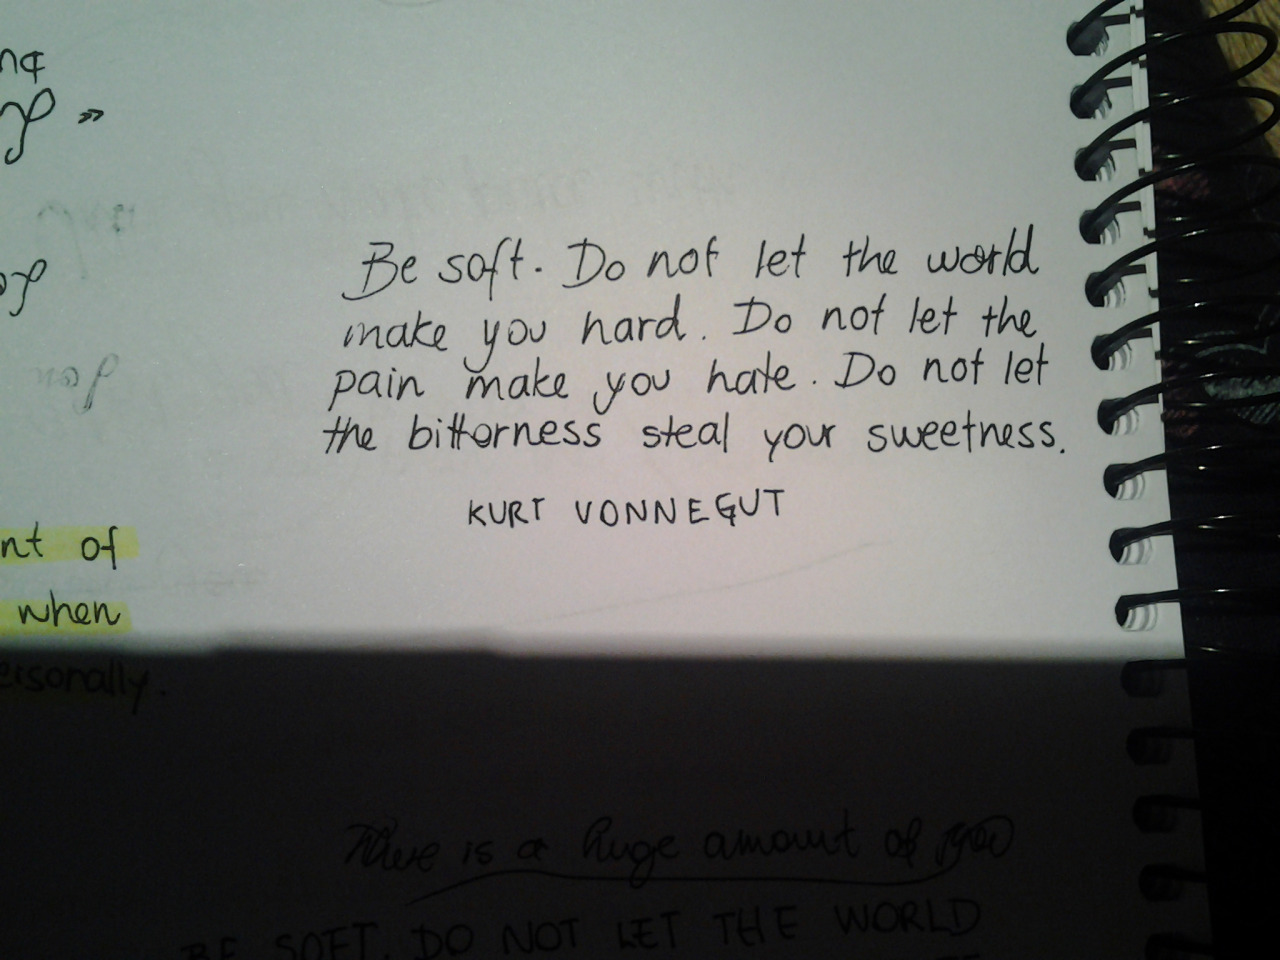 Be soft. Do not let the world
make you hard. Do not let the
pain make you hate. Do not let
the bitterness steal your sweetness.
KURT VONNEGUT
nt of
when
ersonally.
There is a huge amount of you
BE SOFT. DO NOT LET THE WORLD